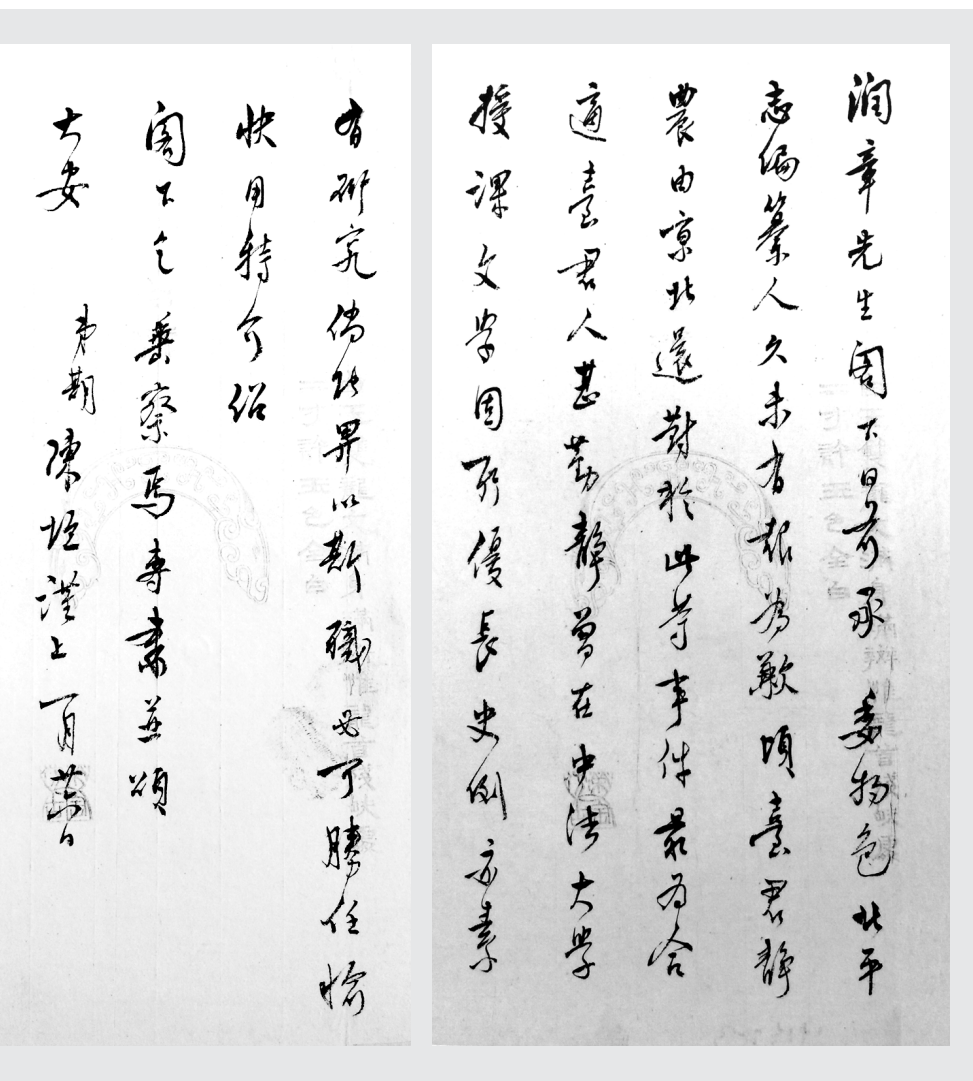 润章先生阁下日前承 委物色北平
志编纂人久未有报为歉顷臺君静
農由京北還對於此等事件最为合
適臺君人甚勤静曾在中法大学
授课文学固所優長史例亦素
有研究倘能畀以斯職必可勝任愉
快用特介绍
阁下乞 垂察焉专肃并頌
大安
弟期陳垣谨上 一月廿日